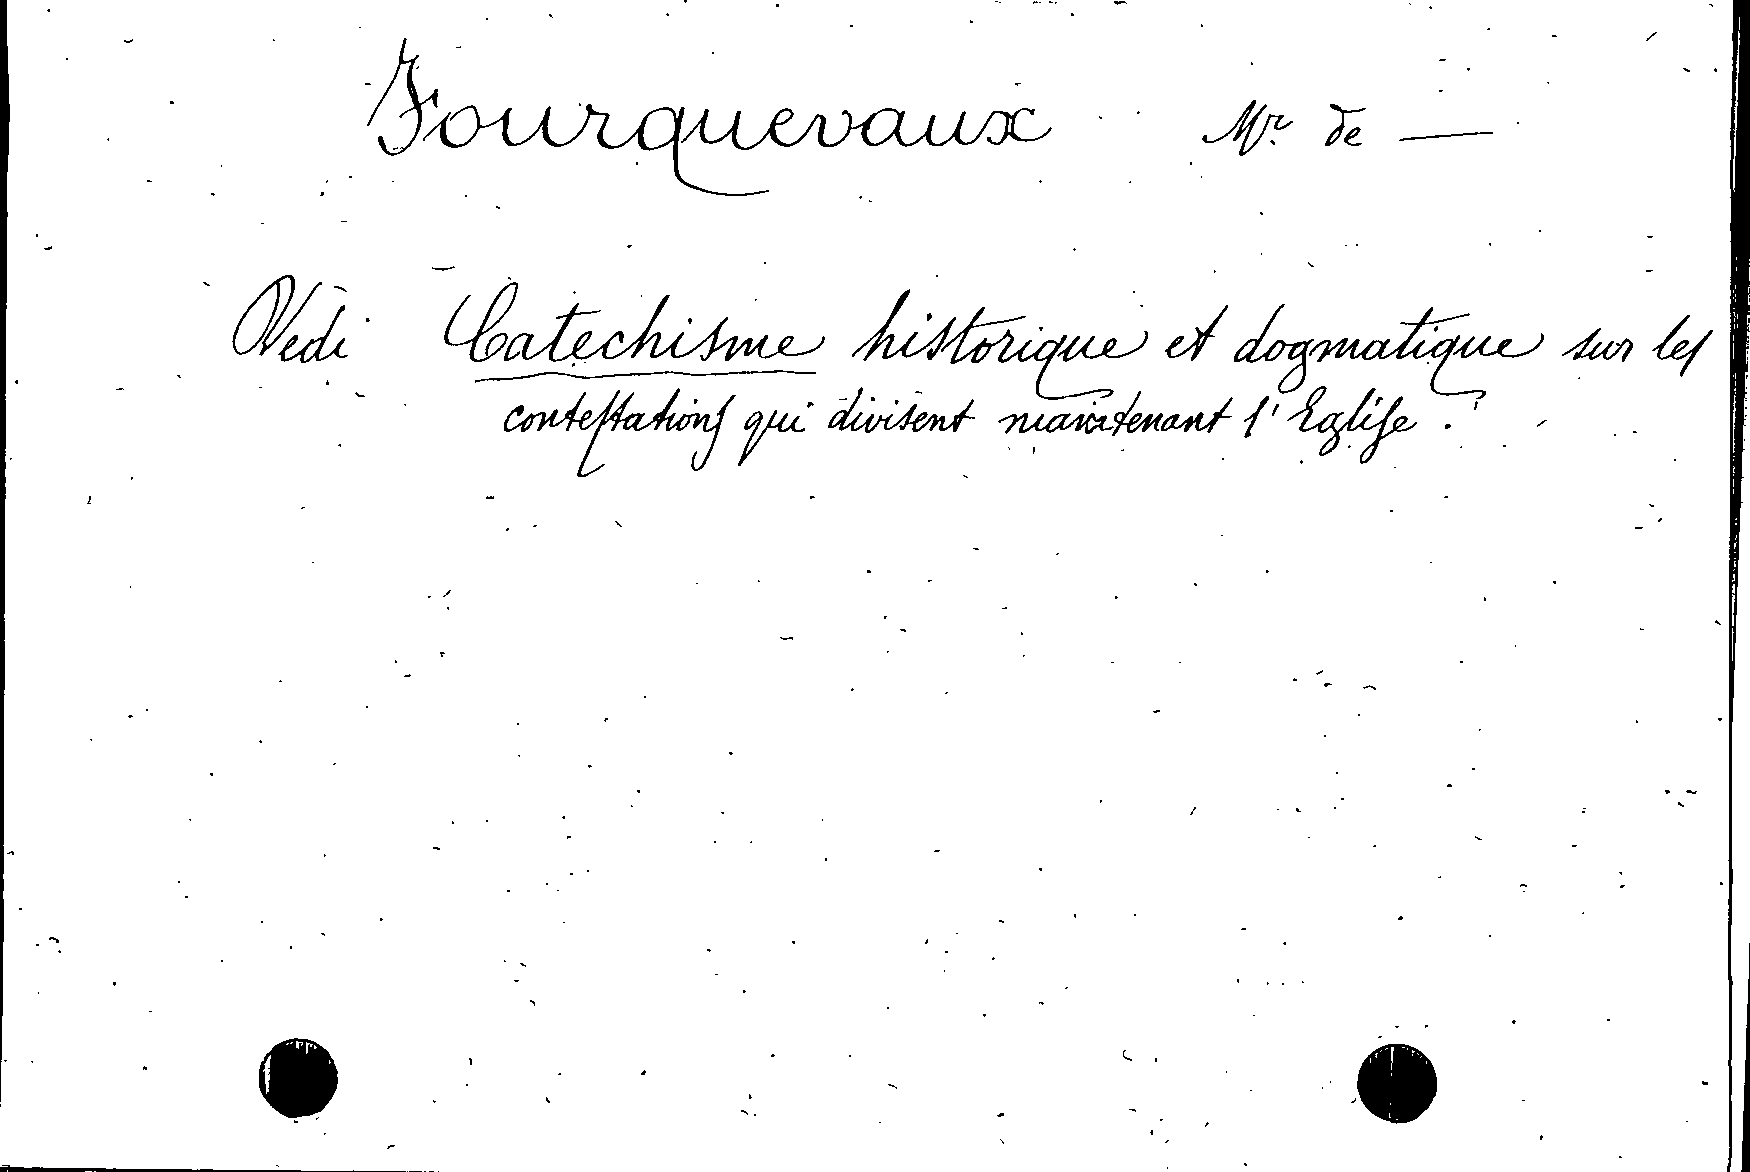 Fourquevaux Mr. de —
Vedi Catechisme historique et dogmatique sur les
contestations qui divisent maintenant l'Eglise.